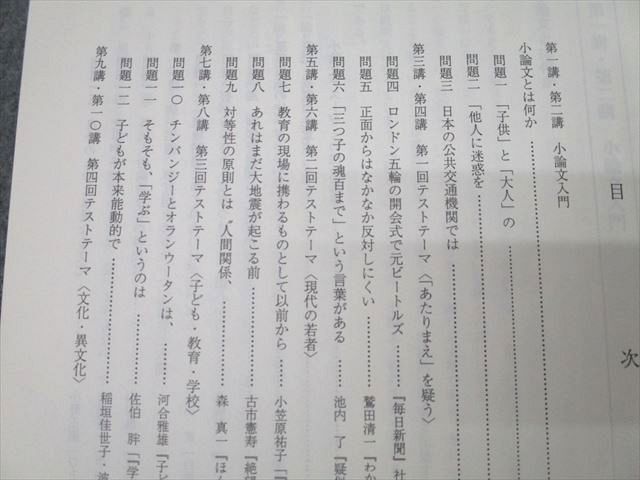 目　次
第一講・第二講　小論文入門
小論文とは何か
問題一　「子供」と「大人」の
問題二　「他人に迷惑を
問題三　日本の公共交通機関では
第三講・第四講　第一回テストテーマ〈「あたりまえ」を疑う〉
問題四　ロンドン五輪の開会式で元ビートルズ　『毎日新聞』社
問題五　正面からはなかなか反対しにくい　鷲田清一『わか
問題六　「三つ子の魂百まで」という言葉がある　池内　了『疑似
第五講・第六講　第二回テストテーマ〈現代の若者〉
問題七　教育の現場に携わるものとして以前から　小笠原祐子「
問題八　あれはまだ大地震が起こる前　古市憲寿『絶望
問題九　対等性の原則とは〝人間関係、　森　真一『ほん
第七講・第八講　第三回テストテーマ〈子ども・教育・学校〉
問題一〇　チンパンジーとオランウータンは、　河合雅雄『子ど
問題一一　そもそも、「学ぶ」というのは　佐伯　胖『「学
問題一二　子どもが本来能動的で　稲垣佳世子・波
第九講・第一〇講　第四回テストテーマ〈文化・異文化〉